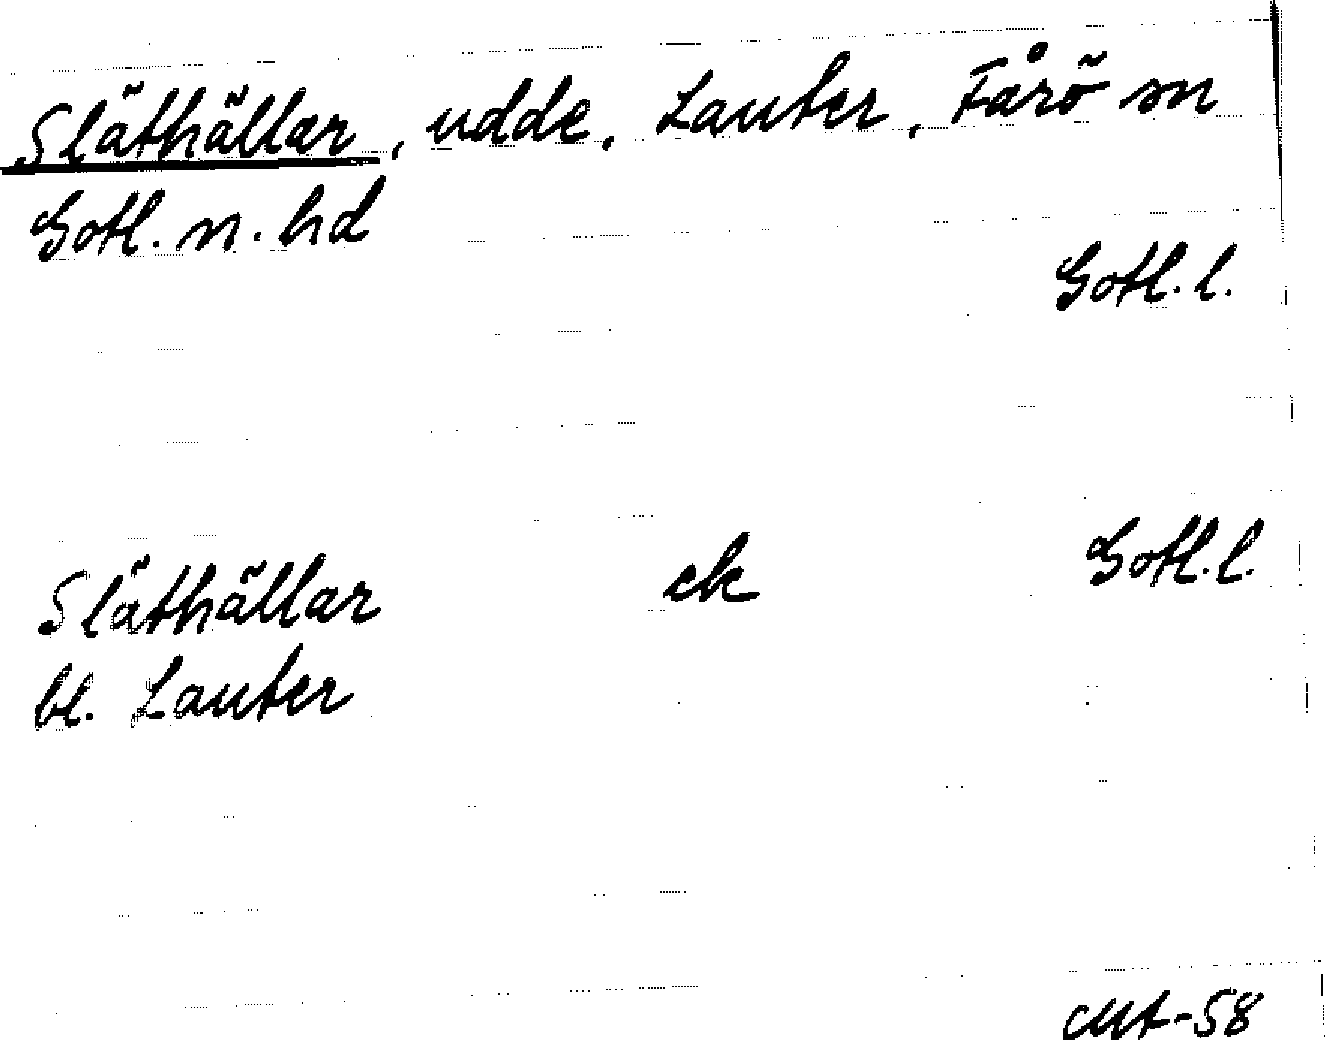 Släthällar, udde, Lauter, Fårö sn
Gotl. n. hd
Gotl. l.
Släthällar ek Gotl. l.
bl. Lauter
-58